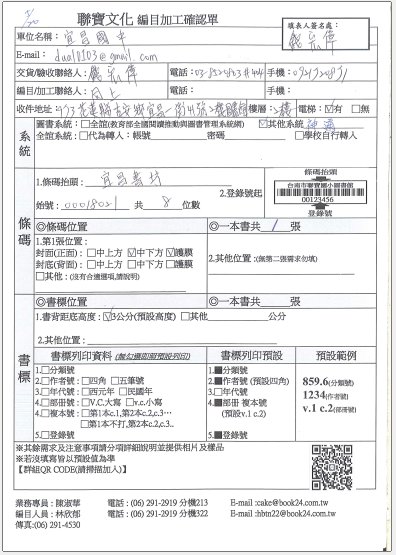 聯寶文化 編目加工確認單
填表人簽名處：
單位名稱：宜昌國中
E-mail：dual0103@gmail.com
交貨/驗收聯絡人： 電話： 手機：
編目/加工聯絡人：同上 電話： 手機：
收件地址： 樓層： 電梯：☑有 □無
系統
圖書系統：□全誼(教育部全國閱讀推動與圖書管理系統網) ☑其他系統
全誼系統：□代為轉人：帳號 密碼 □學校自行轉人
條碼
1.條碼抬頭：宜昌書坊
始號：00018021 共 8 位數
2.登錄號起
條碼抬頭
台南市聯寶國小圖書館
00123456
登錄號
◎條碼位置 ◎一本書共 1 張
1.第1張位置：
封面(正面)：□中上方 ☑中下方 ☑護膜
封底(背面)：□中上方 □中下方 □護膜
□其他：(沒有合適選項,請說明)
2.其他位置：(無第二張需求勿填)
書標
◎書標位置 ◎一本書共 張
1.書背距底高度：☑3公分(預設高度) □其他 公分
2.其他位置：
書標列印資料 (無勾選即照預設列印) 書標列印預設 預設範例
1.□分類號
2.□作者號：□四角 □五筆號
3.□年代號：□西元年 □民國年
4.□部冊號：□V.C.大寫 □v.c.小寫
4.□複本號：□第1本c.1,第2本c.2,c.3…
□第1本不打,第2本c.2,c.3..
5.□登錄號
1.■分類號
2.■作者號 (預設四角)
3.□年代號
4.■部冊 複本號
(預設v.1 c.2)
5.■登錄號
859.6(分類號)
1234(作者號)
v.1 c.2(部冊號)
※其餘需求及注意事項請分項詳細說明並提供相片及樣品
※若沒填寫皆以預設值為準
【群組QR CODE(請掃描加入)】
業務專員：陳淑華 電話：(06) 291-2919 分機213 E-mail :cake@book24.com.tw
編目人員：林欣郁 電話：(06) 291-2919 分機322 E-mail :hbtn22@book24.com.tw
傳真:(06) 291-4530